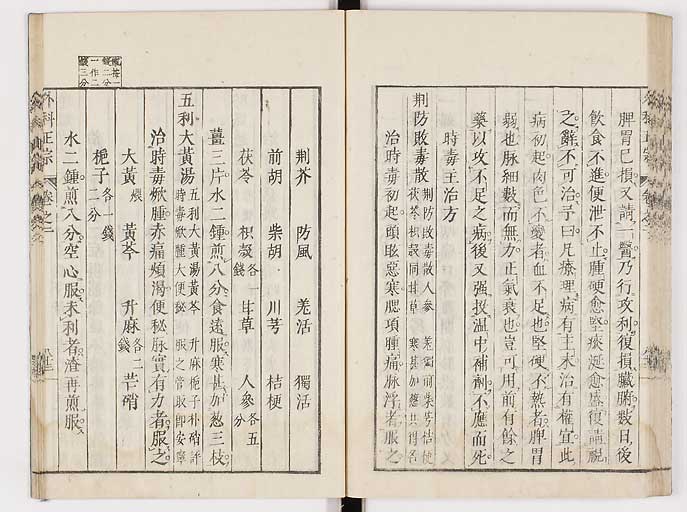 脾胃已損又請一醫乃行攻利復損臟腑數日後
飲食不進便泄不止腫硬愈堅痰涎愈盛復請視
之辭不可治予曰凡療理病有主末治有權宜此
病初起肉色不變者血不足也堅硬不熱者脾胃
弱也脉細數而無力正氣衰也豈可用前有餘之
藥以攻不足之病後又强投温中補劑不應而死
時毒主治方
荆防敗毒散 荆防敗毒散人參 羗獨前柴芎桔梗
茯苓枳殼同甘草 寒甚加葱共得名
治時毒初起頭眩惡寒腮項腫痛脉浮者服之
外科正宗 卷之二
荆芥 防風 羗活 獨活
前胡 柴胡 川芎 桔梗
茯苓 枳殼各一錢 甘草 人參各五分
薑三片水二鍾煎八分食遠服寒甚加葱三枝
五利大黃湯 五利大黃湯黃芩 升麻梔子朴硝評
時毒焮腫大便秘 服之管取即安寧
治時毒焮腫赤痛煩渴便秘脉實有力者服之
大黃煨 黃芩 升麻各二錢 芒硝
梔子各一錢二分
水二鍾煎八分空心服未利者渣再煎服
外科正宗 卷之二
梔芩一
錢二分
一作二
錢三分